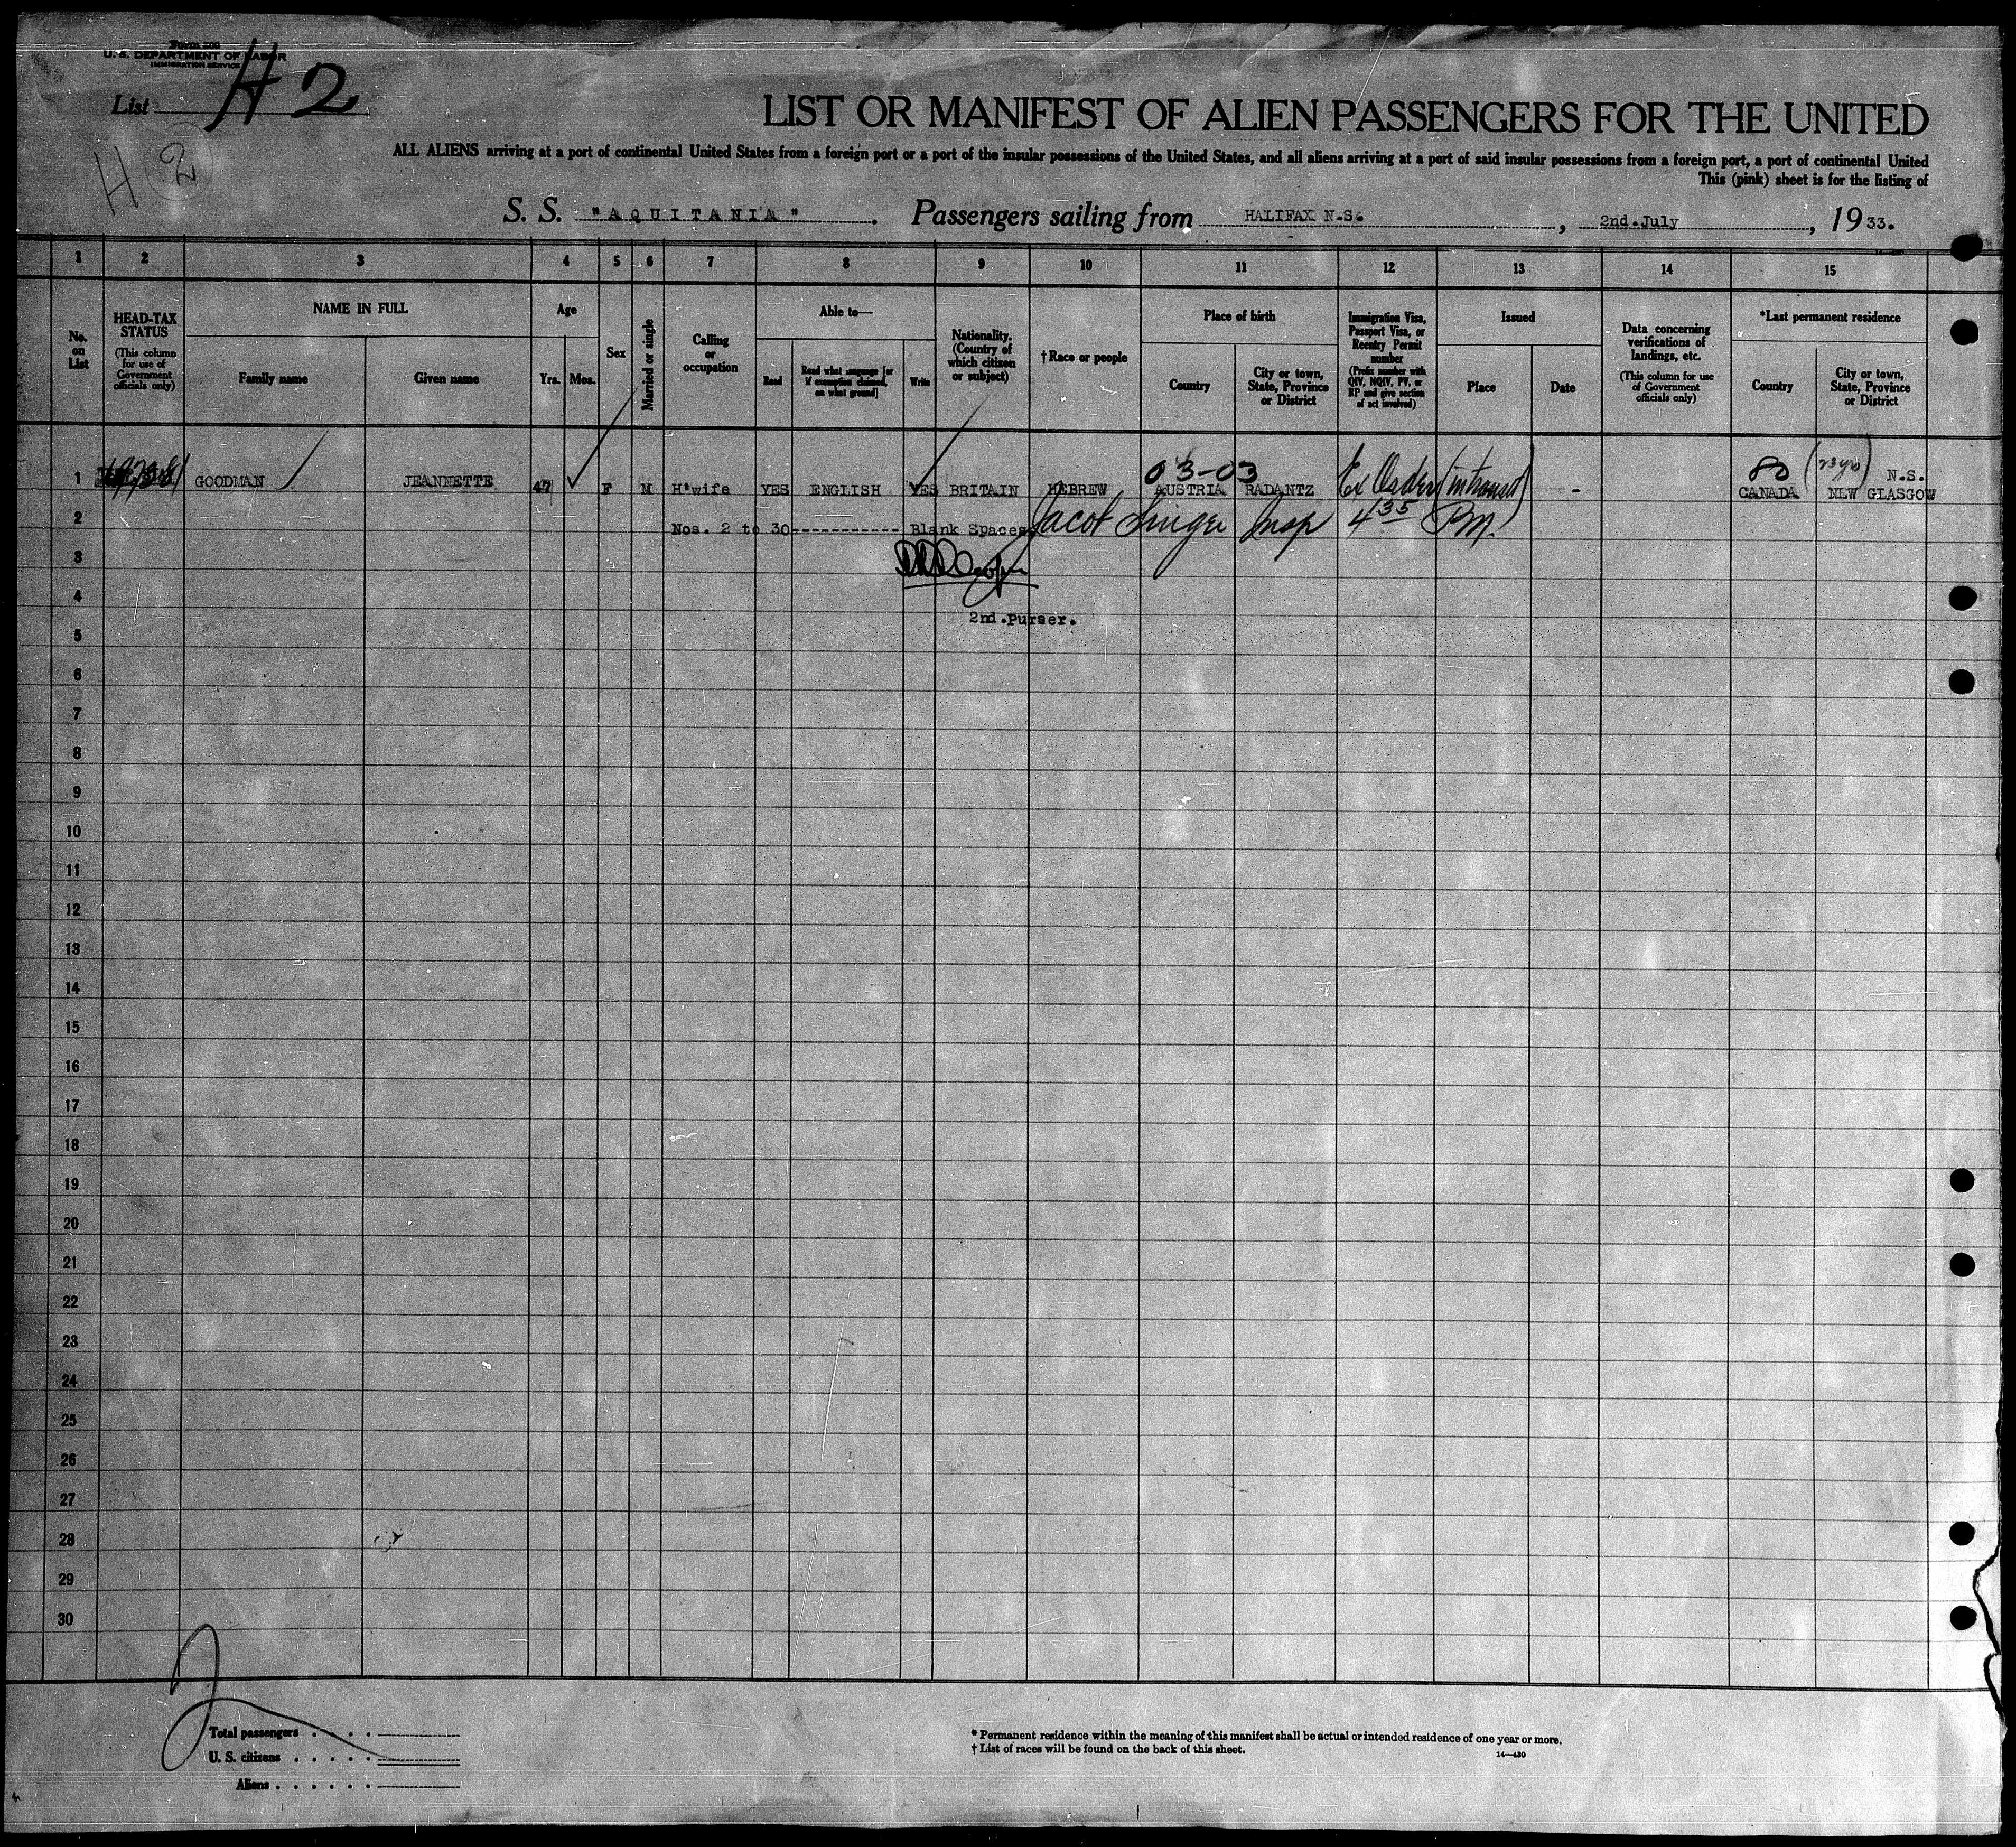 Form 500
U. S. DEPARTMENT OF LABOR
IMMIGRATION SERVICE
List H 2
H 2
LIST OR MANIFEST OF ALIEN PASSENGERS FOR THE UNITED
ALL ALIENS arriving at a port of continental United States from a foreign port or a port of the insular possessions of the United States, and all aliens arriving at a port of said insular possessions from a foreign port, a port of continental United
This (pink) sheet is for the listing of
S. S. "AQUITANIA". Passengers sailing from HALIFAX N.S., 2nd.July, 1933.
1 2 3 4 5 6 7 8 9 10 11 12 13 14 15
No. on List
HEAD-TAX STATUS
(This column for use of Government officials only)
NAME IN FULL
Family name
Given name
Age
Yrs.
Mos.
Sex
Married or single
Calling or occupation
Able to—
Read
Read what language [or if exemption claimed, on what ground]
Write
Nationality. (Country of which citizen or subject)
†Race or people
Place of birth
Country
City or town, State, Province or District
Immigration Visa, Passport Visa, or Reentry Permit number
(Prefix number with QIV, NQIV, PV, or RP and give section of act involved)
Issued
Place
Date
Data concerning verifications of landings, etc.
(This column for use of Government officials only)
*Last permanent residence
Country
City or town, State, Province or District
03-03
(23 yrs)
1 GOODMAN JEANNETTE 47 F M H'wife YES ENGLISH YES BRITAIN HEBREW AUSTRIA RADANTZ Ex Order (intransit) - CANADA N.S. NEW GLASGOW
2 Nos. 2 to 30------------ Blank Spaces. Jacob Singer Insp 4 35 P.M.
3
4
2nd.Purser.
5
6
7
8
9
10
11
12
13
14
15
16
17
18
19
20
21
22
23
24
25
26
27
28
29
30
Total passengers . . . .
U. S. citizens . . . . .
Aliens . . . . . .
* Permanent residence within the meaning of this manifest shall be actual or intended residence of one year or more.
† List of races will be found on the back of this sheet.
14—430